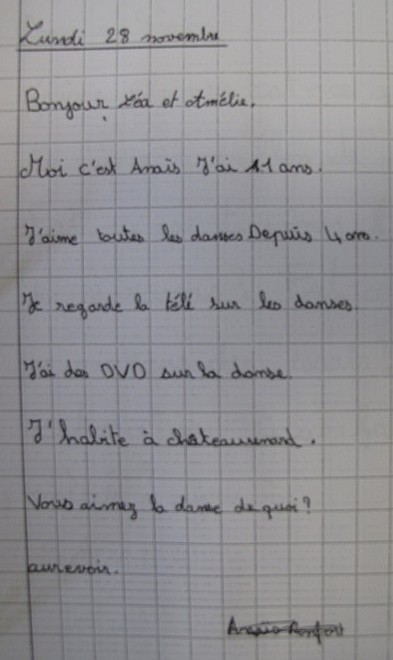 Lundi 28 novembre
Bonjour Léa et Amélie.
Moi c'est Anaïs J'ai 11 ans.
J'aime toutes les danses Depuis 4 ans.
Je regarde la télé sur les danses
J'ai des DVD sur la danse.
J'habite à chateaurenard.
Vous aimez la danse de quoi?
aurevoir.